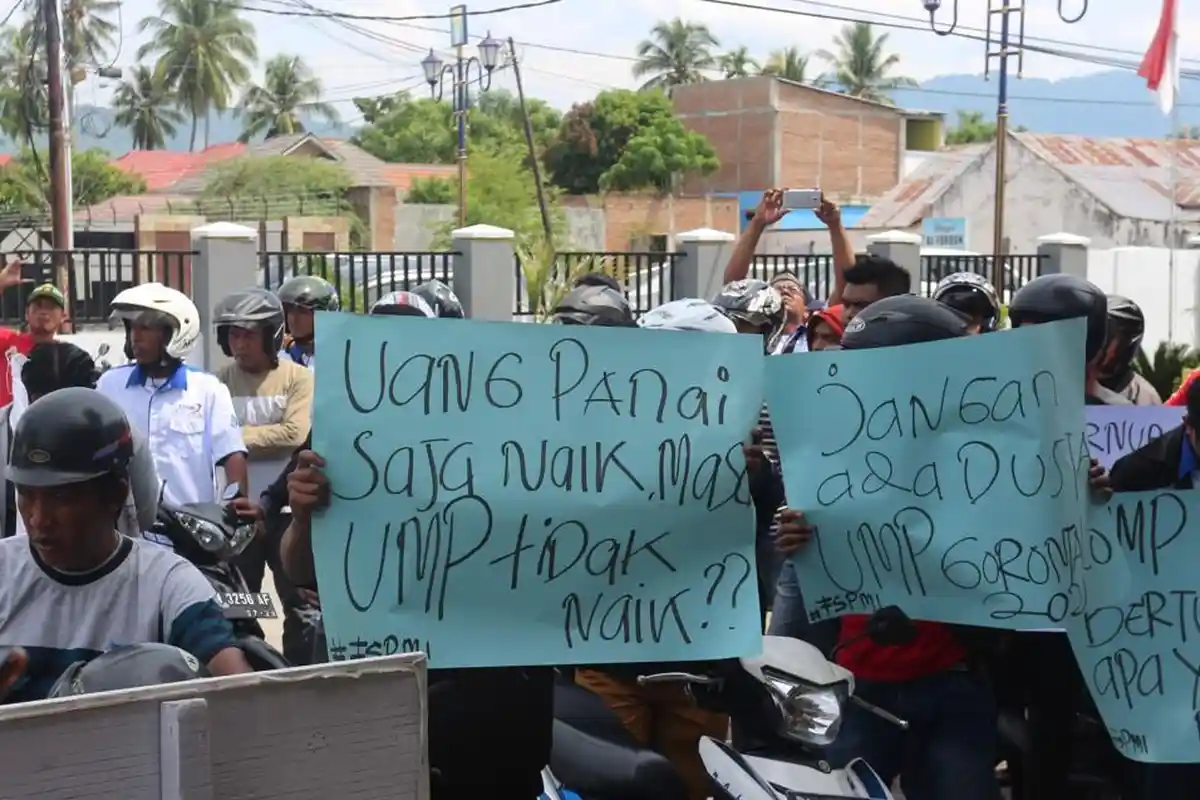 UANG PANAi
SAJA NAIK, MASA
UMP tiDAK
NAIK??
#FSPMI
JANGAN
adA DUSTA
UMP GORONTALO
202
#FSPMI
RNUR
MP
BERTU
APA Y
SPMI
3256 AF